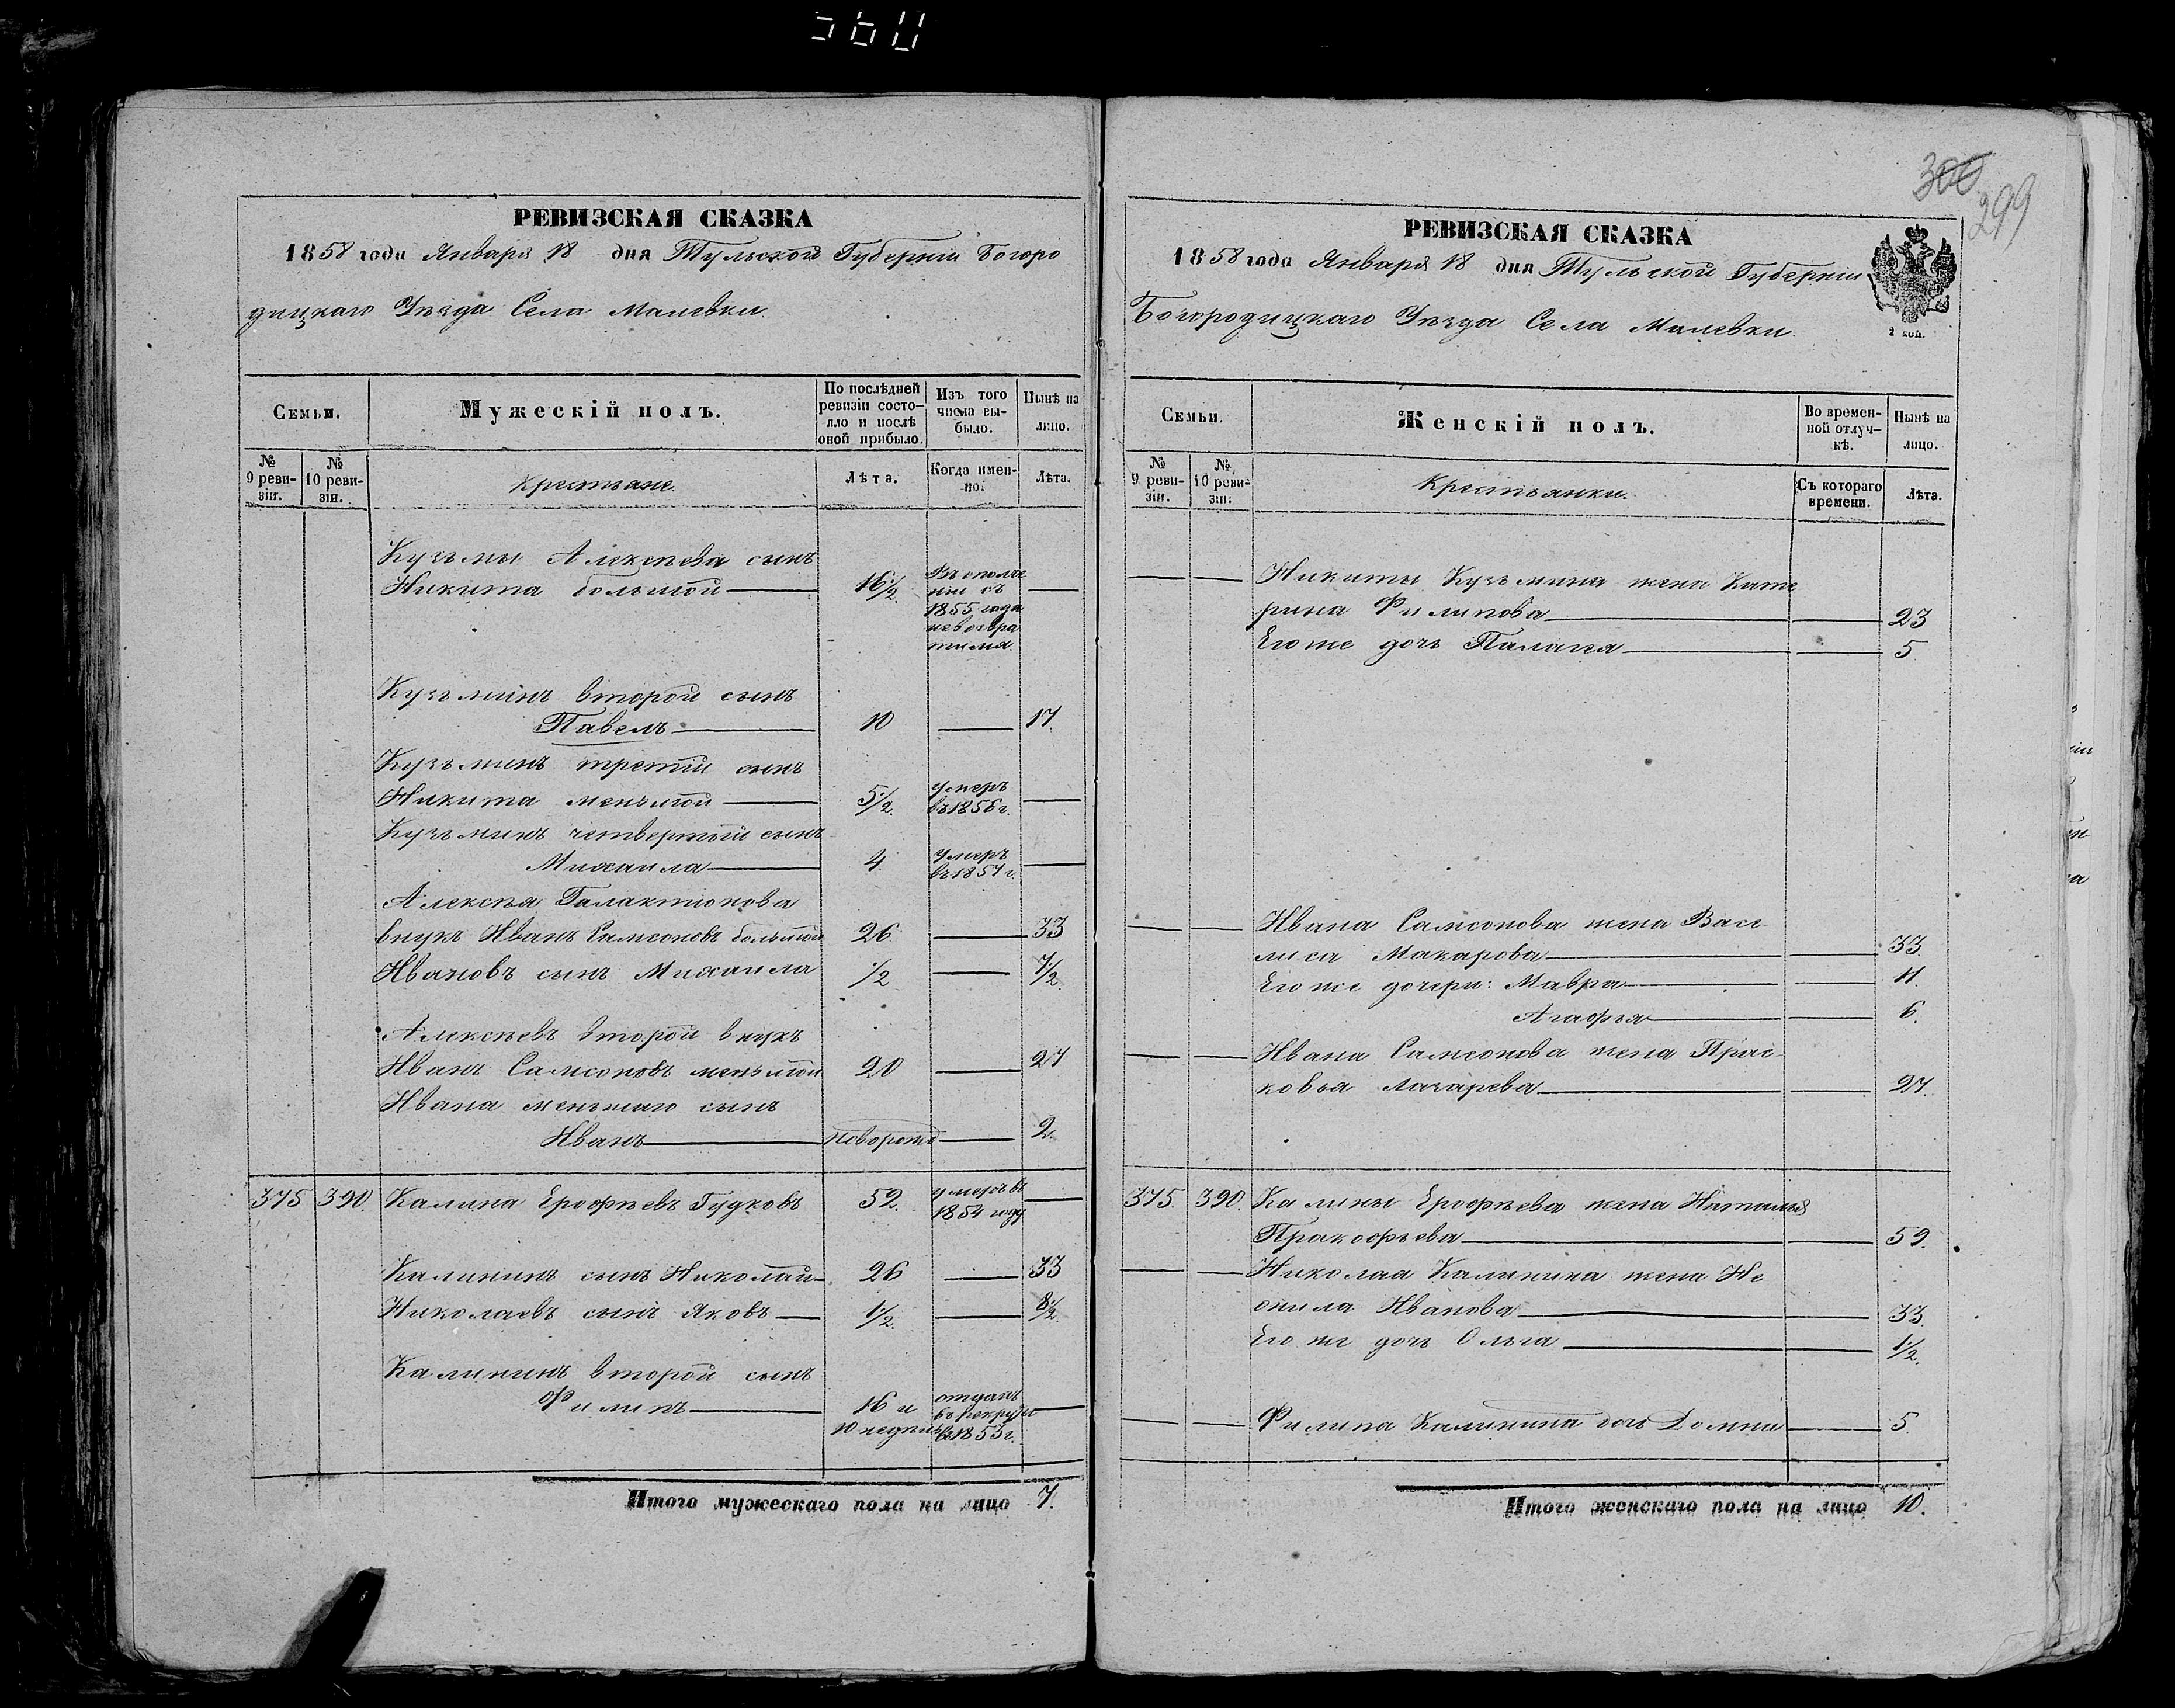 560
РЕВИЗСКАЯ СКАЗКА
1858 года Января 18 дня Тульской Губерніи Богоро
дицкаго Уѣзда Села Малевки.
Семьи.
Мужескій полъ.
По послѣдней ревизіи состояло и послѣ оной прибыло.
Изъ того числа выбыло.
Нынѣ на лицо.
№ 9 ревизіи.
№ 10 ревизіи.
Крестьяне.
Лѣта.
Когда именно.
Лѣта.
Кузьмы Алексѣева сынъ
Никита большой — 16½ Въ ополче
ніи съ
1855 года
невозвра
тился.
Кузьминъ второй сынъ
Павелъ — 10 — 17.
Кузьминъ третій сынъ
Никита меньшой — 5½. умеръ въ 1856 г. —
Кузьминъ четвертый сынъ
Михаила — 4 умеръ въ 1857 г. —
Алексѣя Галактіонова
внукъ Иванъ Самсоновъ большой 26 — 33
Ивановъ сынъ Михаила ½ — 7½.
Алексѣевъ второй внукъ
Иванъ Самсоновъ меньшой 20 — 27
Ивана меньшаго сынъ
Иванъ — новорожд — 2.
375 390. Калина Ерофѣевъ Гудковъ 52. умеръ въ 1854 году —
Калининъ сынъ Николай — 26 — 33
Николаевъ сынъ Яковъ — 1½. — 8½.
Калининъ второй сынъ
Филипъ — 16 и 10 недѣль отданъ въ рекруты въ 1853 г. —
Итого мужескаго пола на лицо 7.
300 299
РЕВИЗСКАЯ СКАЗКА
1858 года Января 18 дня Тульской Губерніи
Богородицкаго Уѣзда Села Малевки
2 коп.
Семьи.
Женскій полъ.
Во временной отлучкѣ.
Нынѣ на лицо.
№ 9 ревизіи.
№ 10 ревизіи.
Крестьянки.
Съ котораго времени.
Лѣта.
— — Никиты Кузьмина жена Кате
рина Филипова — — 23
Его же дочь Палагея — — 5.
— — Ивана Самсонова жена Васи
лиса Макарова — — 33.
Его же дочери: Мавра — — 11.
Агафья — — 6.
— — Ивана Самсонова жена Прас
ковья Лазарева — — 27.
375. 390. Калины Ерофѣева жена Наталья
Пракофьева — — 59.
— — Николая Калинина жена Не
онила Иванова — — 33.
Его же дочь Ольга — — 1½.
— — Филипа Калинина дочь Домна — 5.
Итого женскаго пола на лицо 10.